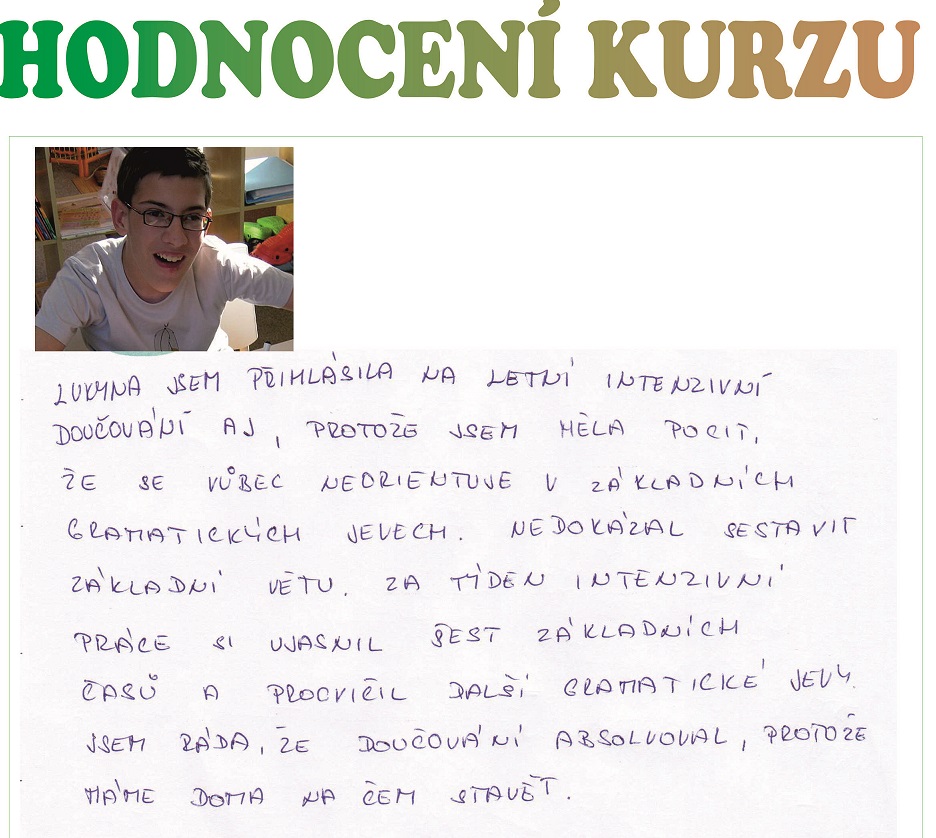 HODNOCENÍ KURZU
LUKYNA JSEM PŘIHLÁSILA NA LETNÍ INTENZIVNÍ
DOUČOVÁNÍ AJ, PROTOŽE JSEM MĚLA POCIT,
ŽE SE VŮBEC NEORIENTUJE V ZÁKLADNÍCH
GRAMATICKÝCH JEVECH. NEDOKÁZAL SESTAVIT
ZÁKLADNÍ VĚTU. ZA TÝDEN INTENZIVNÍ
PRÁCE SI UJASNIL ŠEST ZÁKLADNÍCH
ČASŮ A PROCVIČIL DALŠÍ GRAMATICKÉ JEVY.
JSEM RÁDA, ŽE DOUČOVÁNÍ ABSOLVOVAL, PROTOŽE
MÁME DOMA NA ČEM STAVĚT.